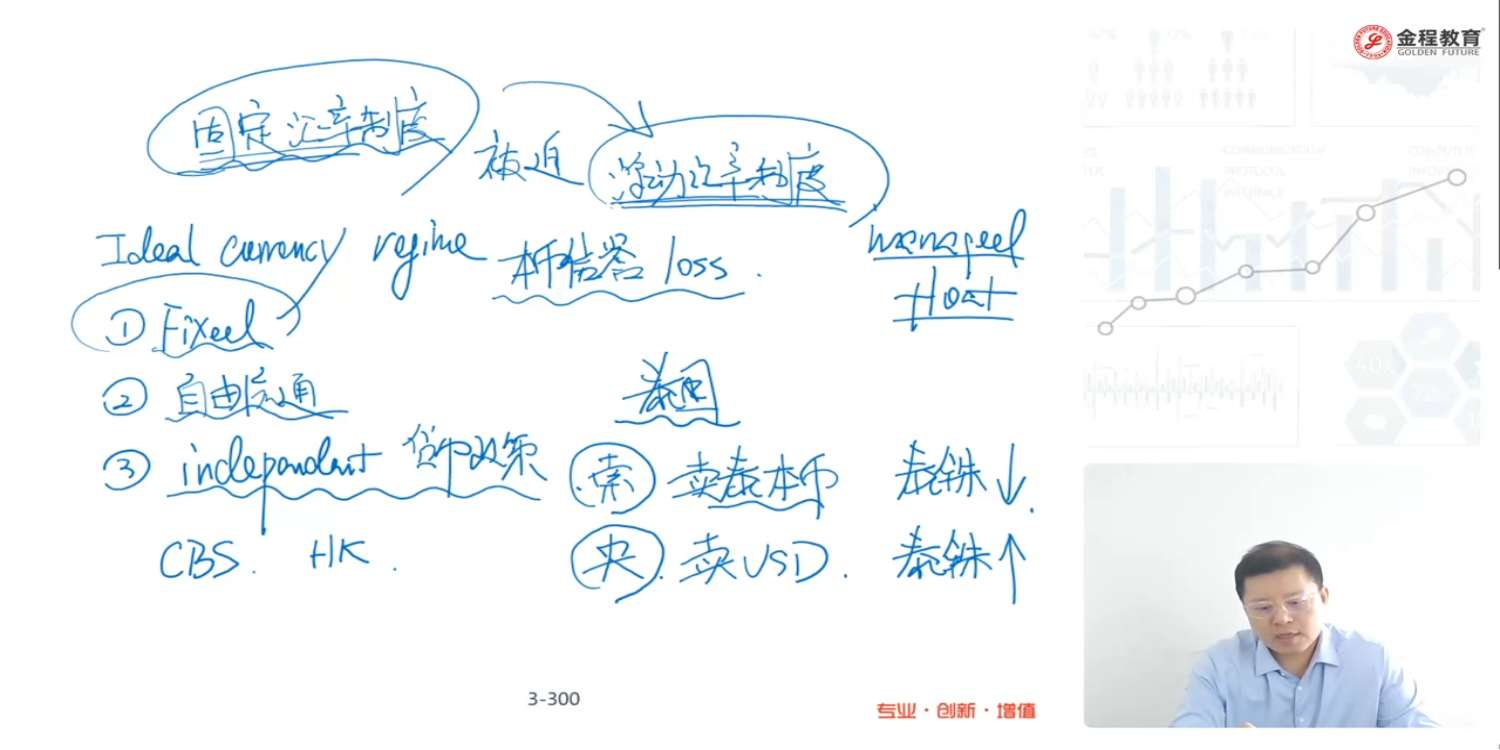 金程教育
GOLDEN FUTURE
固定汇率制度
被迫
浮动汇率制度
Ideal currency regime
本币信誉 loss.
managed
float
① Fixed
② 自由流通
泰国
③ independent 货币政策
索 卖泰本币 泰铢↓.
CBS. HK.
央. 卖USD. 泰铢↑
3-300
专业·创新·增值